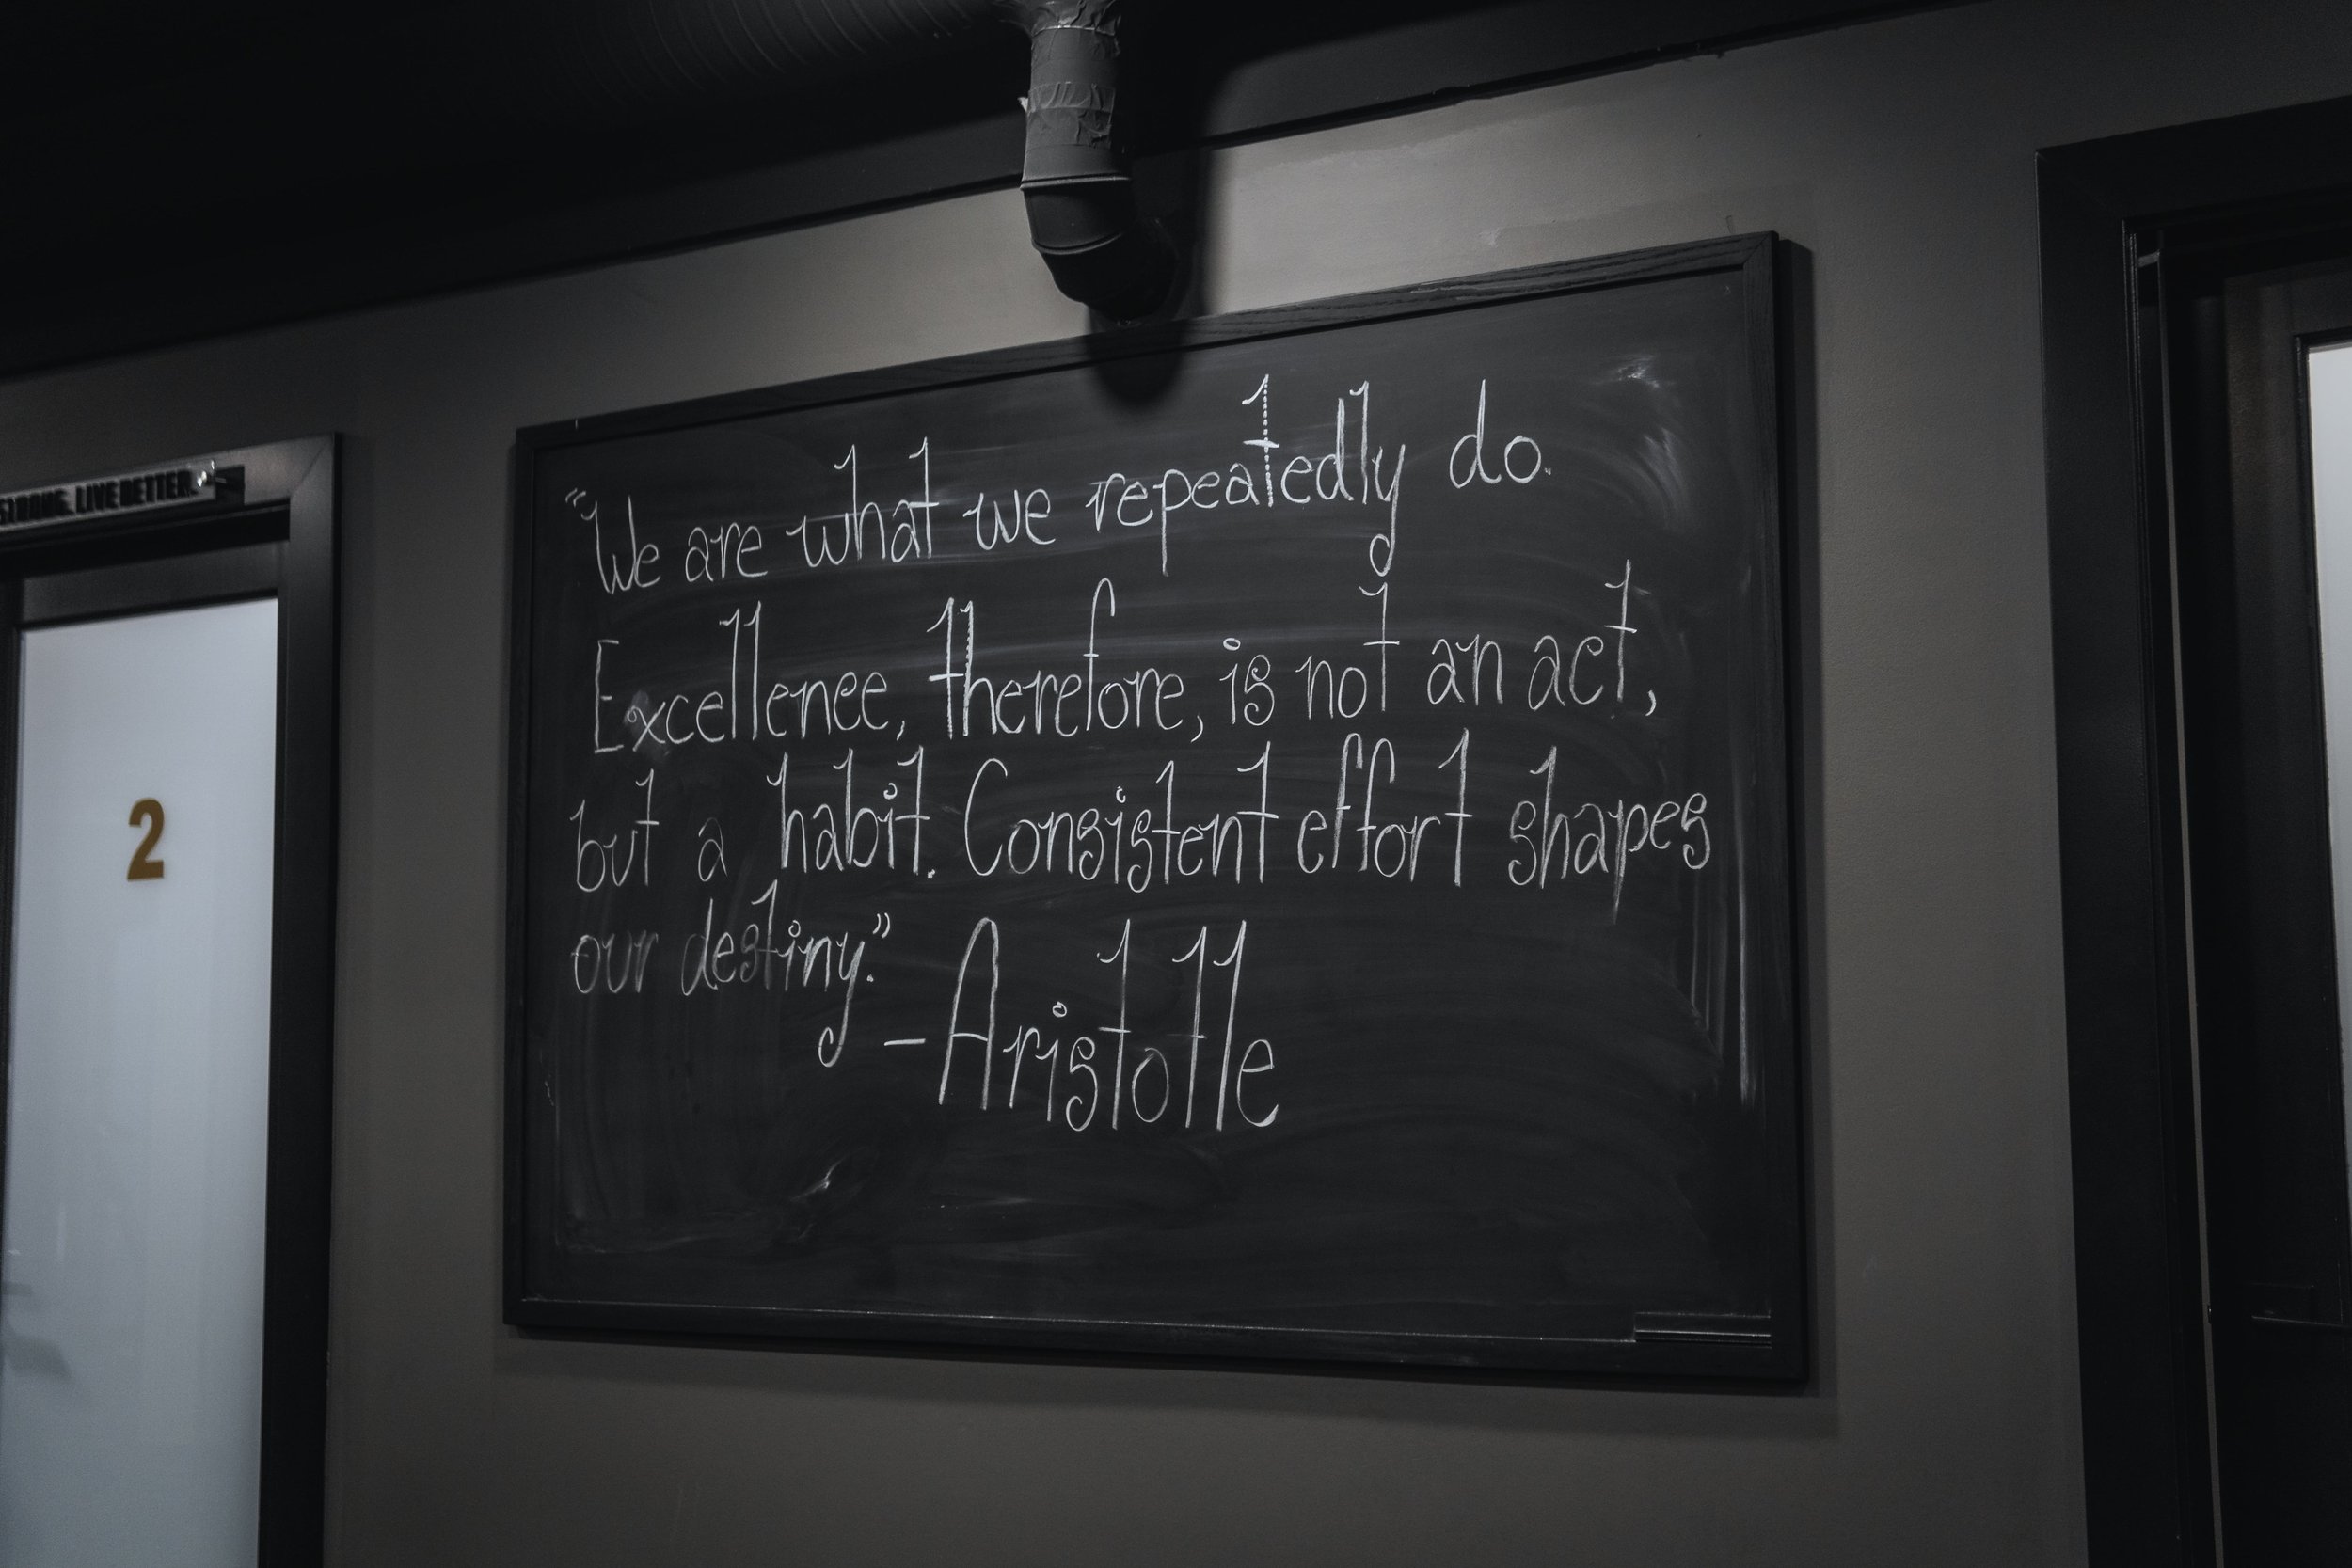 STRONG. LIVE BETTER.
2
"We are what we repeatedly do.
Excellenee, therefore, is not an act,
but a habit. Consistent effort shapes
our destiny."
-Aristotle